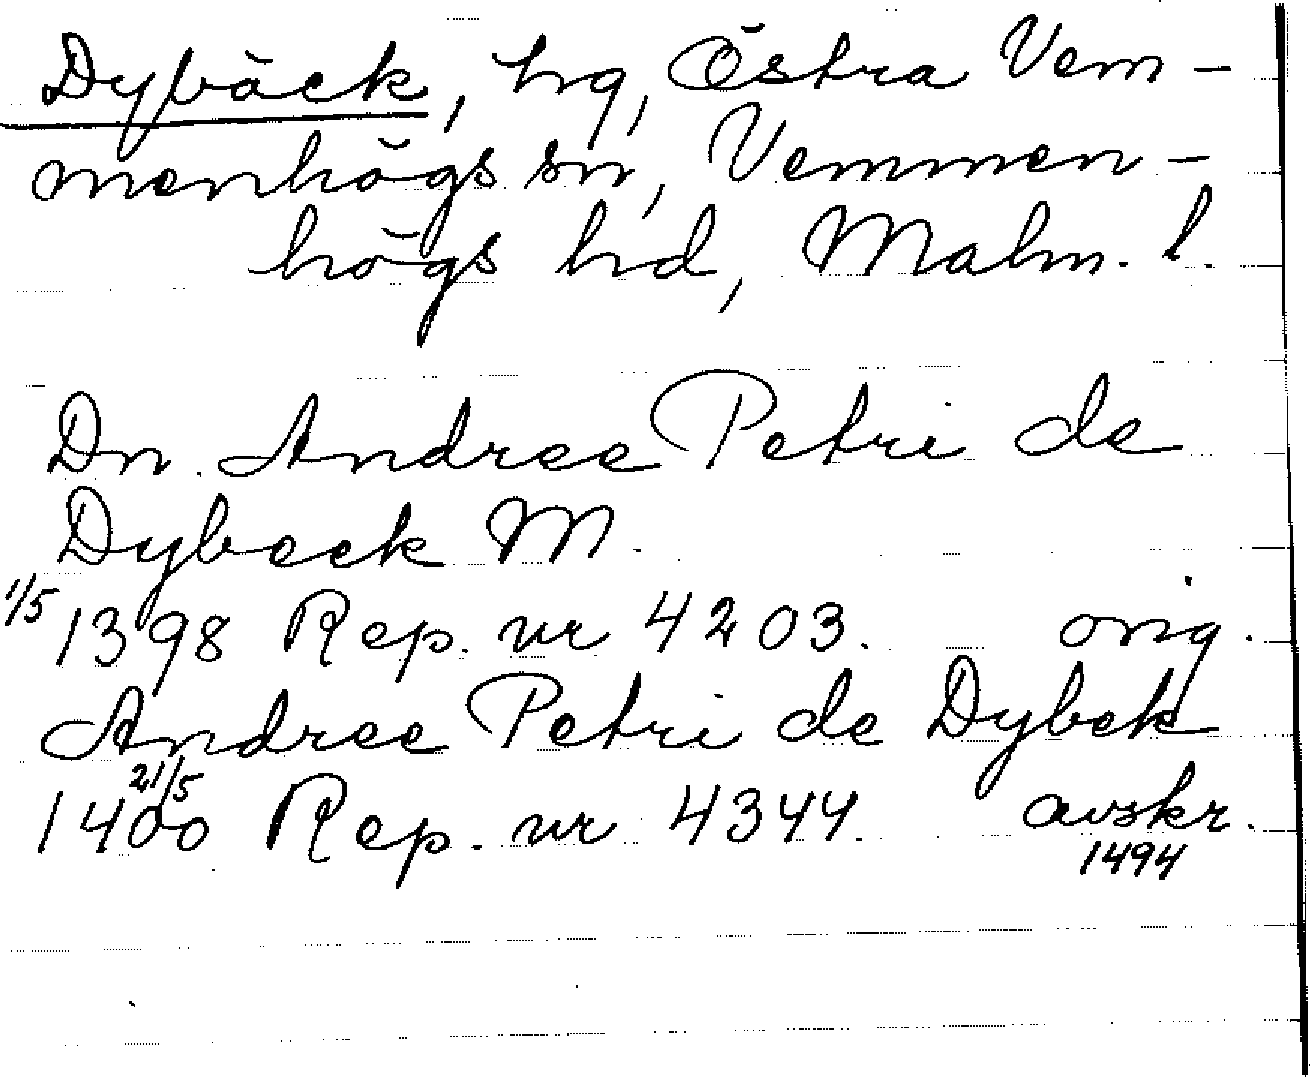 Dybäck, hg, Östra Vem-
menhögs sn, Vemmen-
högs hd, Malm. l.
Dn. Andree Petri de
Dybeck M.
1/5 1398 Rep. nr 4203. orig.
Andree Petri de Dybek
21/5
1400 Rep. nr 4344. avskr.
1494